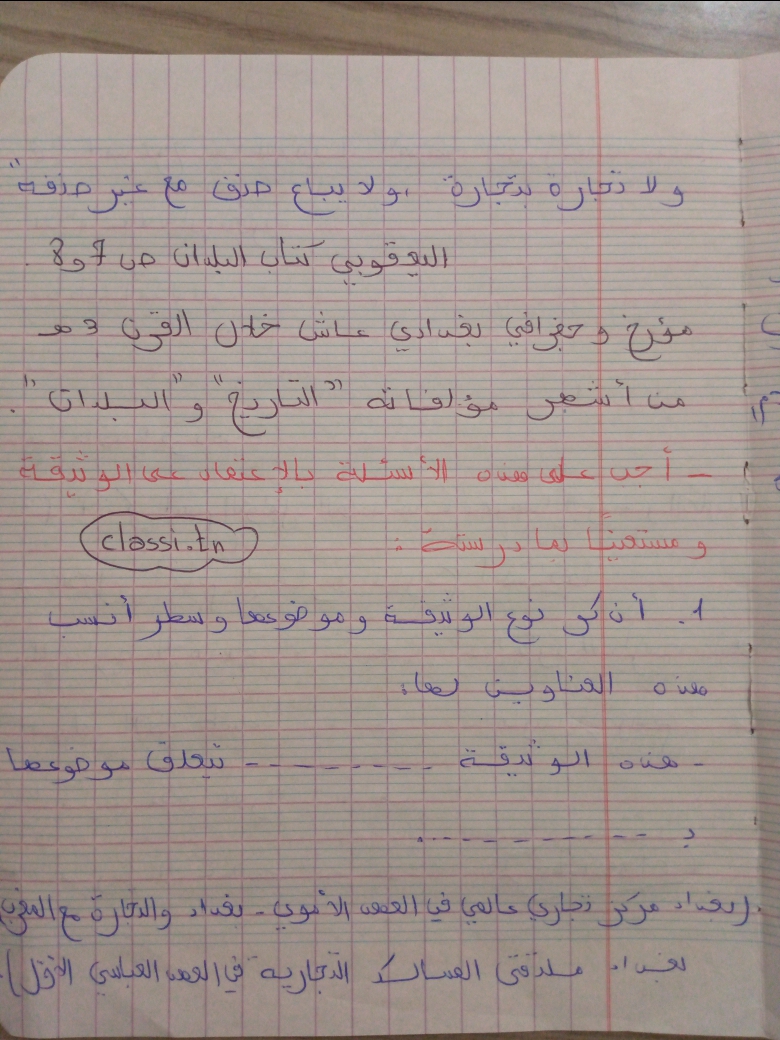 ولا تجارة بتجارة ، ولا يباع صنف مع غير صنفه"
اليعقوبي كتاب البلدان ص 7 و 8 .
مؤرخ وجغرافي بغدادي عاش خلال القرن 3 هـ
من أشهر مؤلفاته "التاريخ" و "البلدان" .
- أجب على هذه الأسئلة بالإعتماد على الوثيقة
و مستعينًا بما درسته :
classi.tn
1. أذكر نوع الوثيقة و موضوعها و سطر أنسب
هذه العناوين لها :
- هذه الوثيقة -------- تتعلق موضوعها
بـ ----------.
(بغداد مركز تجاري عالمي في العصر الأموي - بغداد والتجارة مع المغرب
بغداد ملتقى المسالك التجارية في العصر العباسي الأول).